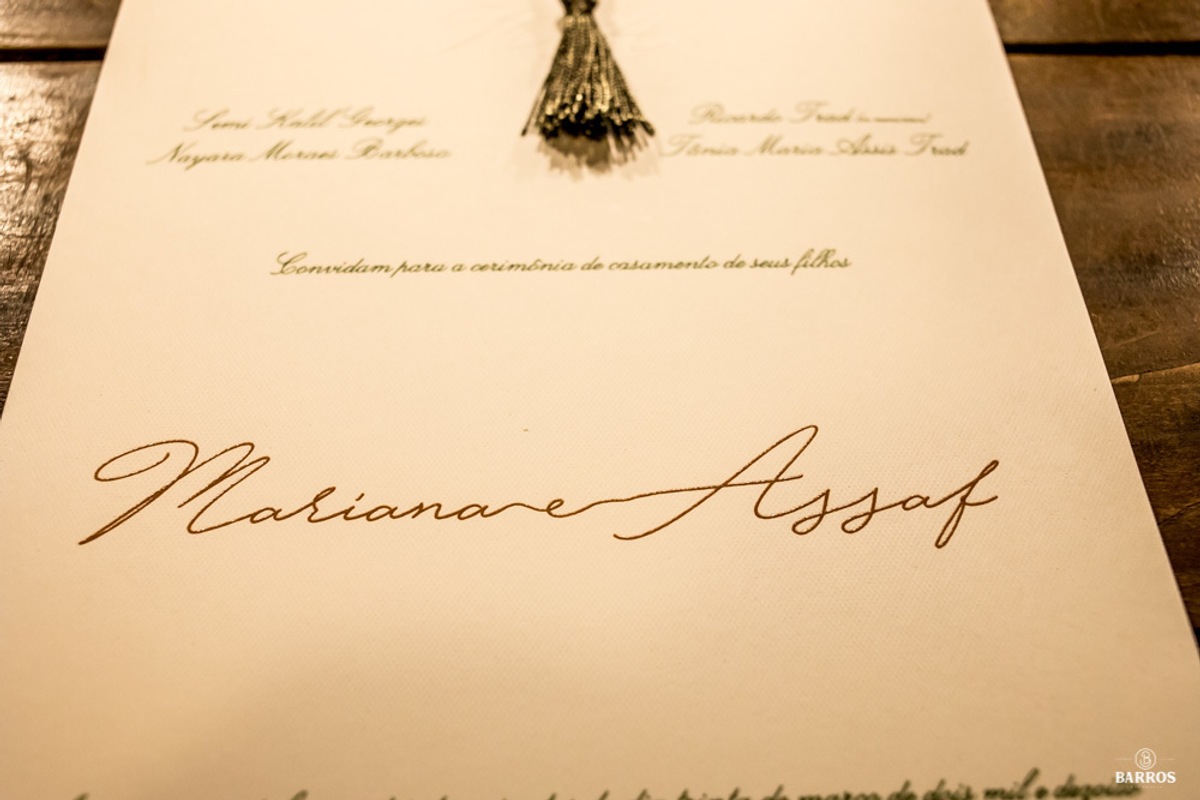 Semi Kalil Georges
Nayara Moraes Barbosa
Ricardo Trad (in memorian)
Tânia Maria Assis Trad
Convidam para a cerimônia de casamento de seus filhos
Mariana e Assaf
dia trinta de março de dois mil e dezoito
B
BARROS